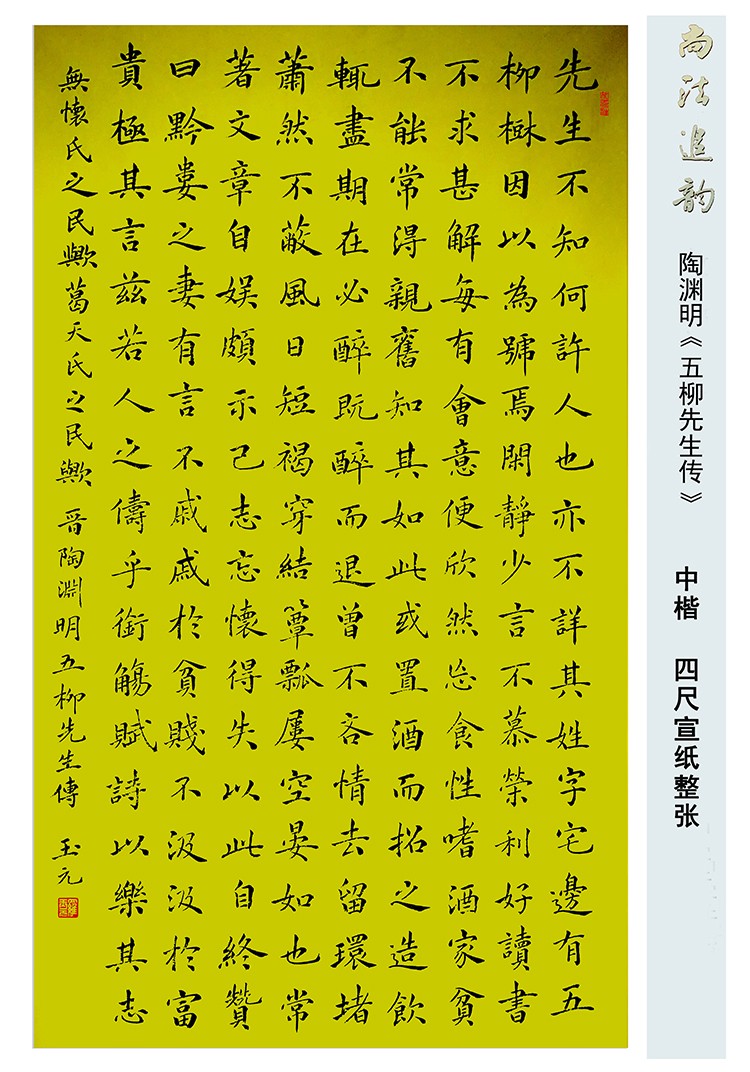 尚法追韵
陶渊明《五柳先生传》 中楷 四尺宣纸整张
先生不知何許人也亦不詳其姓字宅邊有五
柳樹因以為號焉閑靜少言不慕榮利好讀書
不求甚解每有會意便欣然忘食性嗜酒家貧
不能常得親舊知其如此或置酒而招之造飲
輒盡期在必醉既醉而退曾不吝情去留環堵
蕭然不蔽風日短褐穿結簞瓢屢空晏如也常
著文章自娛頗示己志忘懷得失以此自終贊
曰黔婁之妻有言不戚戚於貧賤不汲汲於富
貴極其言茲若人之儔乎銜觴賦詩以樂其志
無懷氏之民歟葛天氏之民歟 晉陶淵明五柳先生傳 玉元